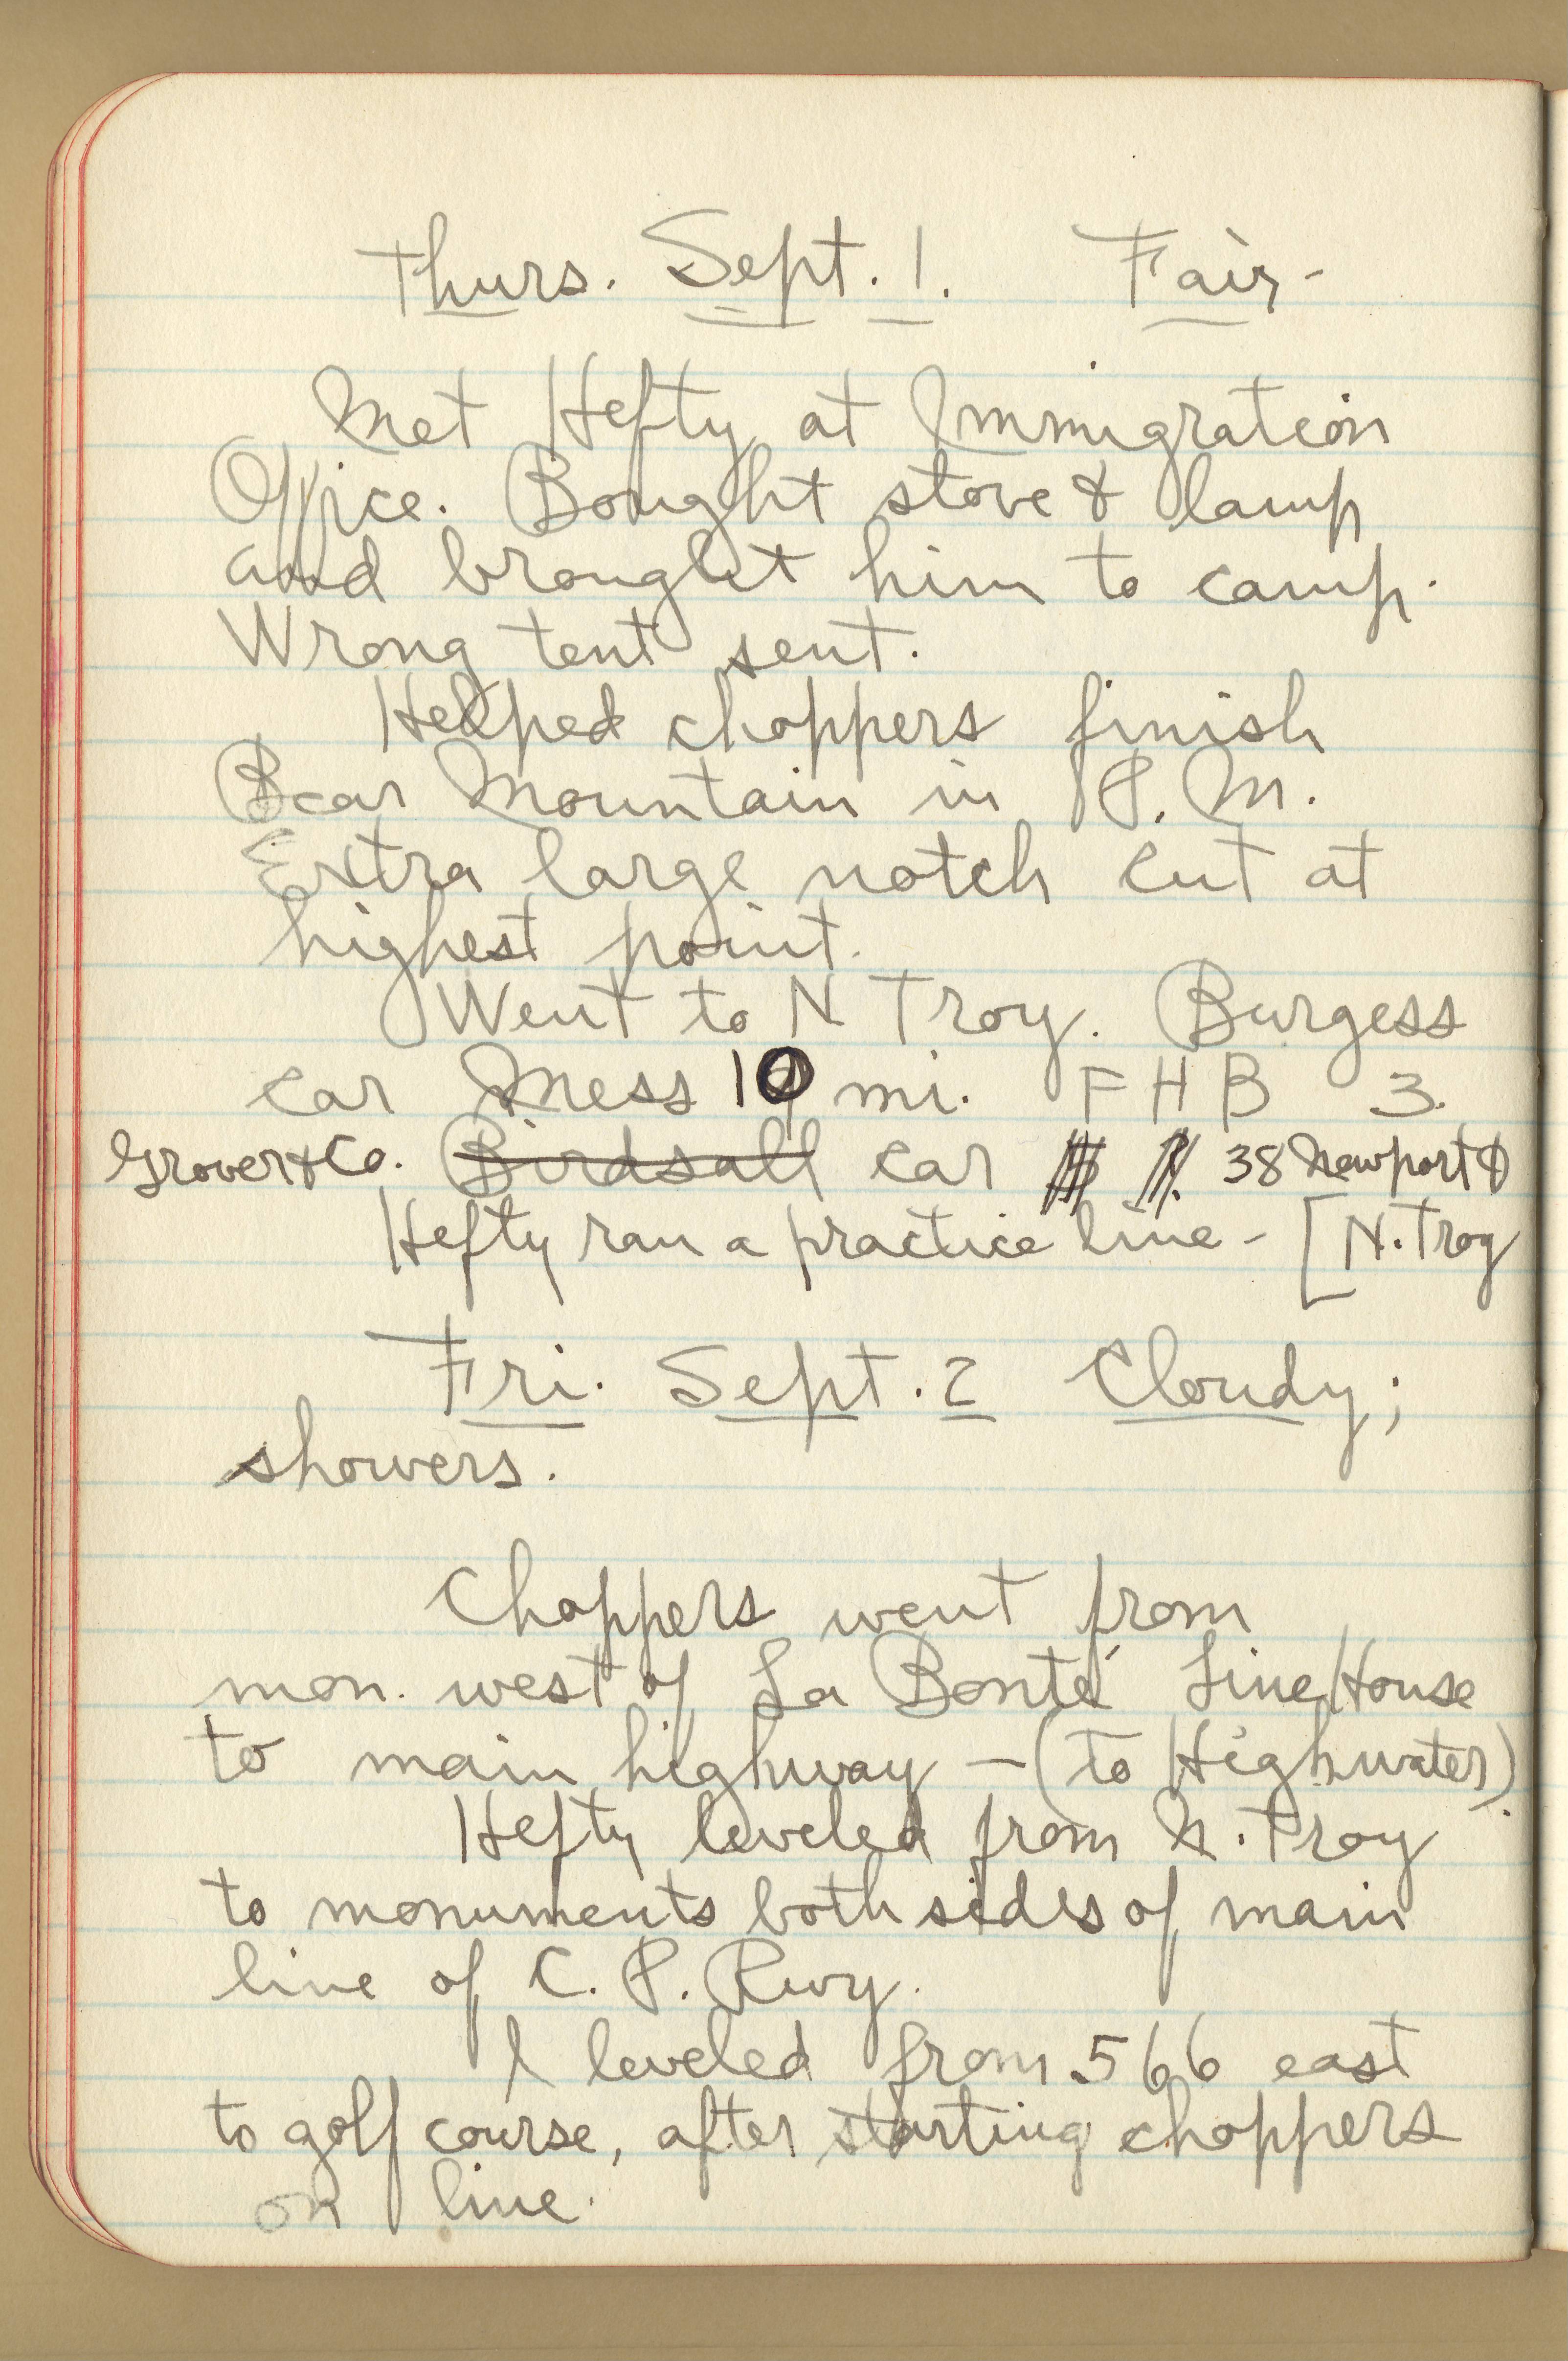 Thurs. Sept. 1. Fair-
Met Hefty at Immigration
Office. Bought stove & lamp
and brought him to camp.
Wrong tent sent.
Helped choppers finish
Bear Mountain in P.M.
Extra large notch cut at
highest point.
Went to N Troy. Burgess
car Mess 10 mi. F H B 3.
Grover & Co. Birdsall car 38 Newport &
Hefty ran a practice line - [N. Troy
Fri. Sept. 2 Cloudy;
showers.
Choppers went from
mon. west of La Bonté Line House
to main highway - (to Highwater).
Hefty leveled from N. Troy
to monuments both sides of main
line of C. P. Rwy.
I leveled from 566 east
to golf course, after starting choppers
on line.